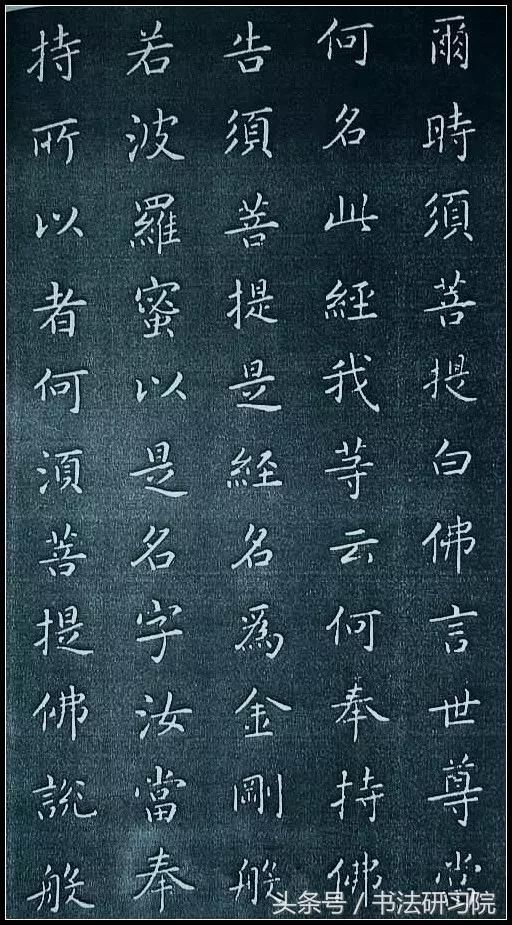 爾時須菩提白佛言世尊當
何名此經我等云何奉持佛
告須菩提是經名為金剛般
若波羅蜜以是名字汝當奉
持所以者何須菩提佛說般
头条号/书法研习院